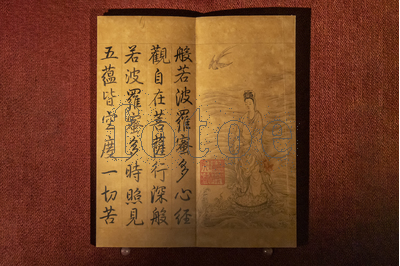 般若波羅蜜多心經
觀自在菩薩行深般
若波羅蜜多時照見
五蘊皆空度一切苦